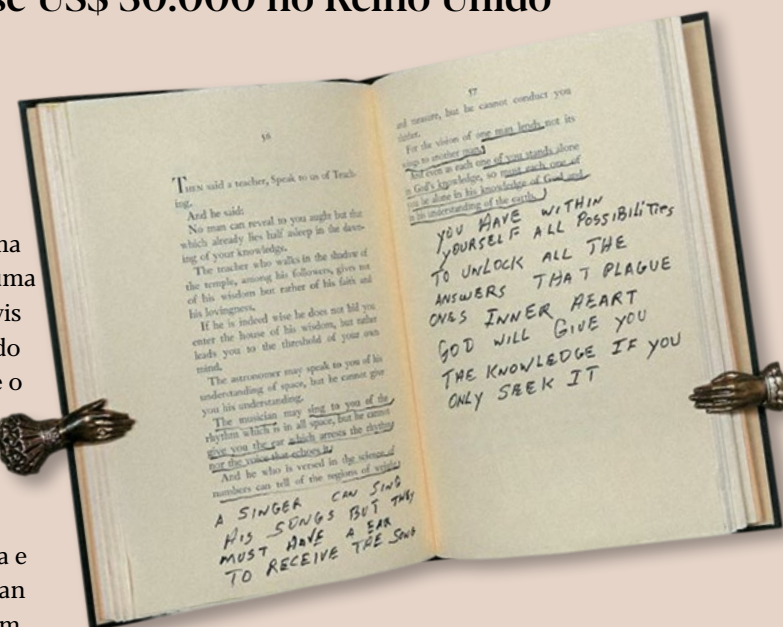 se US$ no Reino Unido
na
uma
vis
do
e o
a e
an
m
56
THEN said a teacher, Speak to us of Teach-
ing.
And he said:
No man can reveal to you aught but that
which already lies half asleep in the dawn-
ing of your knowledge.
The teacher who walks in the shadow of
the temple, among his followers, gives not
of his wisdom but rather of his faith and
his lovingness.
If he is indeed wise he does not bid you
enter the house of his wisdom, but rather
leads you to the threshold of your own
mind.
The astronomer may speak to you of his
understanding of space, but he cannot give
you his understanding.
The musician may sing to you of the
rhythm which is in all space, but he cannot
give you the ear which arrests the rhythm
nor the voice that echoes it.
And he who is versed in the science of
numbers can tell of the regions of weight
A SINGER CAN SING
HIS SONGS BUT THEY
MUST HAVE A EAR
TO RECEIVE THE SONG
57
and measure, but he cannot conduct you
thither.
For the vision of one man lends not its
wings to another man.
And even as each one of you stands alone
in God's knowledge, so must each one of
you be alone in his knowledge of God and
in his understanding of the earth.
YOU HAVE WITHIN
YOURSELF ALL POSSIBILITIES
TO UNLOCK ALL THE
ANSWERS THAT PLAGUE
ONES INNER HEART
GOD WILL GIVE YOU
THE KNOWLEDGE IF YOU
ONLY SEEK IT